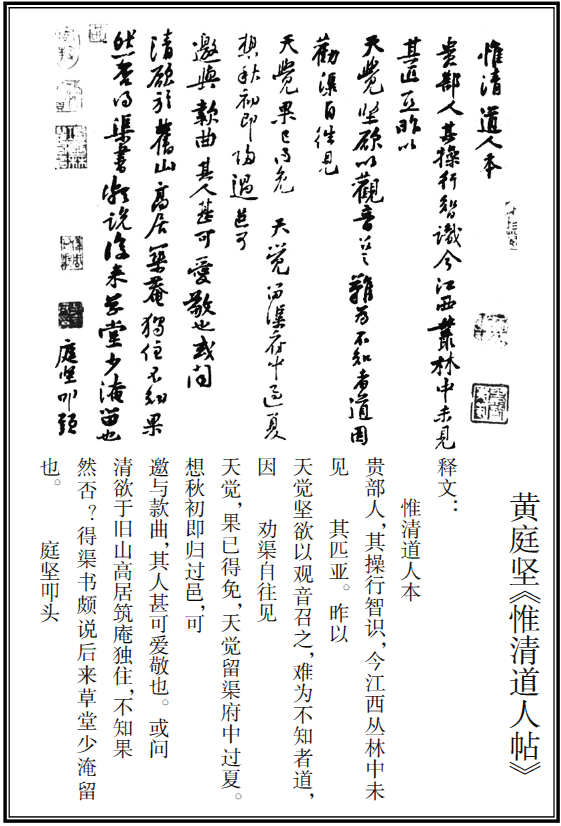 黄庭坚《惟清道人帖》
惟清道人本
貴部人其操行智識今江西叢林中未見
其匹亞昨以
天覺堅欲以觀音召之難為不知者道因
勸渠自往見
天覺果已得免 天覺留渠府中過夏
想秋初即歸過邑可
邀與款曲其人甚可愛敬也或問
清欲於舊山高居築菴獨住不知果
然否得渠書頗說後來草堂少淹留也
庭堅叩頭
释文：
惟清道人本
贵部人，其操行智识，今江西丛林中未
见 其匹亚。昨以
天觉坚欲以观音召之，难为不知者道，
因 劝渠自往见
天觉，果已得免，天觉留渠府中过夏。
想秋初即归过邑，可
邀与款曲，其人甚可爱敬也。或问
清欲于旧山高居筑庵独住，不知果
然否？得渠书颇说后来草堂少淹留
也。 庭坚叩头